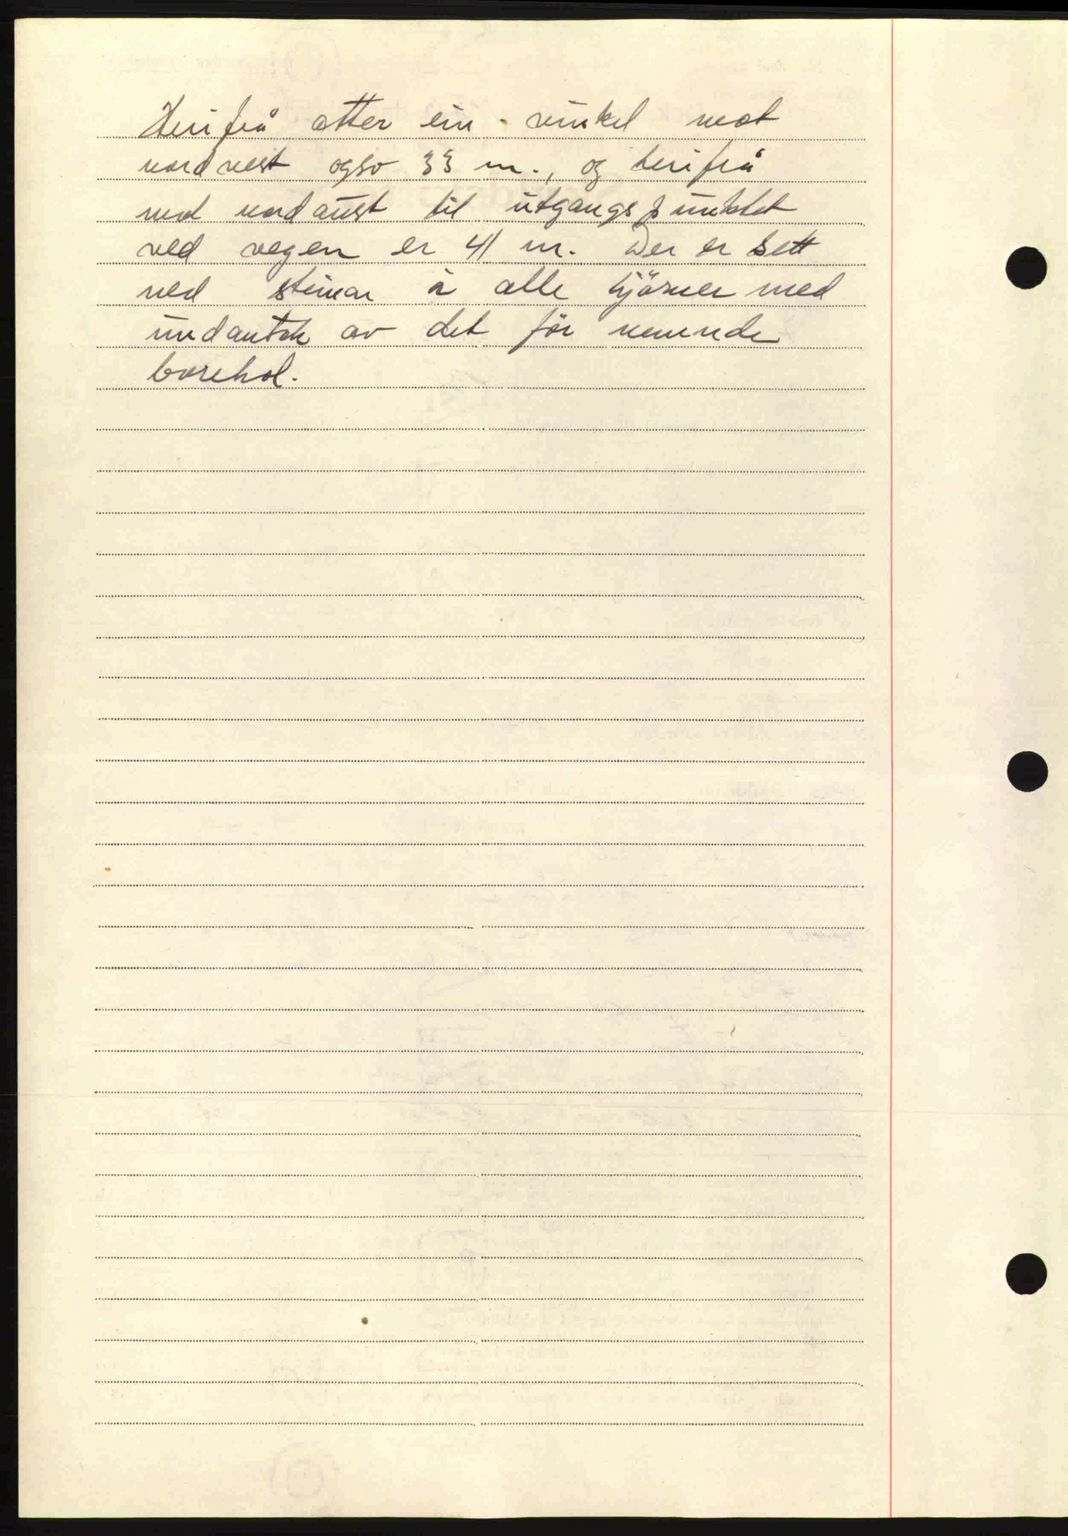 Herifrå atter ein vinkel mot
nordvest ogso 33 m., og herifrå
mot nordaust til utgangspunktet
ved vegen er 41 m. Der er sett
ned steinar i alle hjörner med
undantak av det för nemnde
borehol.